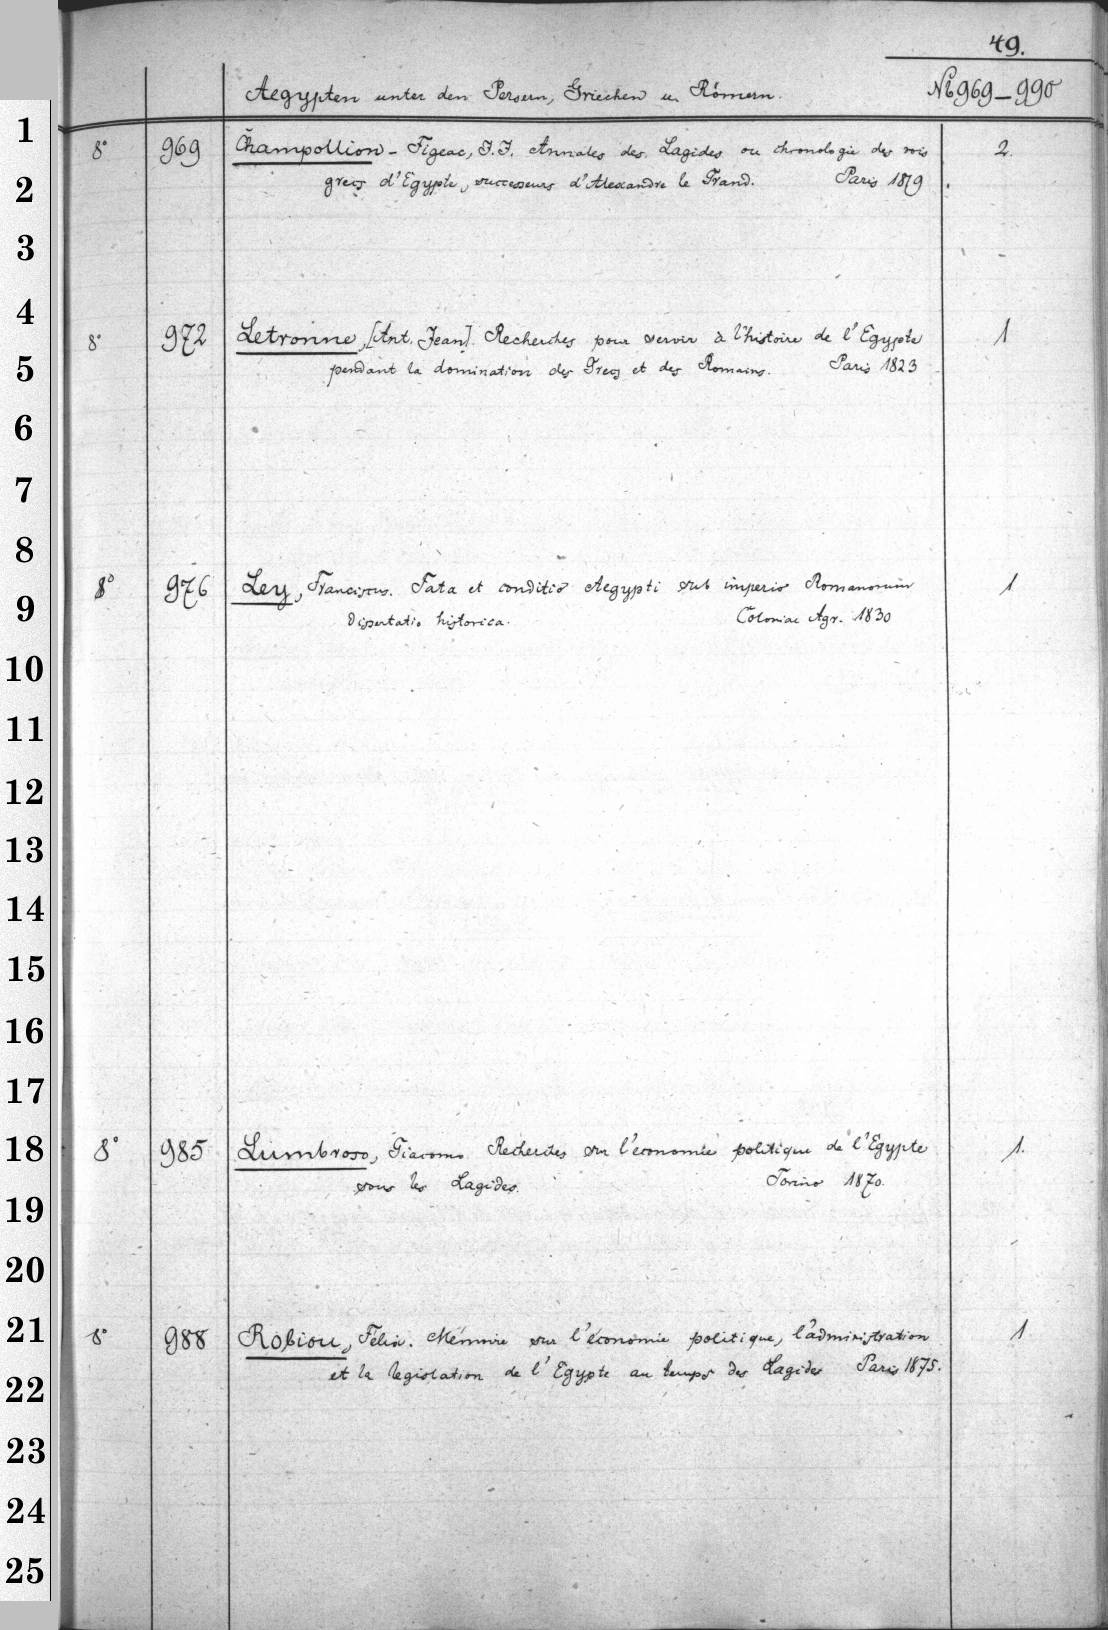 49.
Aegypten unter den Persern, Griechen u. Römern. № 969-990
1
8° 969 Champollion-Figeac, J.J. Annales des Lagides ou chronologie des rois 2.
2
grecs d'Egypte, successeurs d'Alexandre le Grand. Paris 1819
3
4
8° 972 Letronne, [Ant. Jean]. Recherches pour servir à l'histoire de l'Egypte 1
5
pendant la domination des Grecs et des Romains. Paris 1823
6
7
8
8° 976 Ley, Franciscus. Fata et conditio Aegypti sub imperio Romanorum 1
9
Dissertatio historica. Coloniae Agr. 1830
10
11
12
13
14
15
16
17
18
8° 985 Lumbroso, Giacomo Recherches sur l'économie politique de l'Egypte 1.
sous les Lagides. Torino 1870.
19
20
21
8° 988 Robiou, Félix. Mémoire sur l'économie politique, l'administration 1
et la legislation de l'Egypte au temps des Lagides Paris 1875.
22
23
24
25